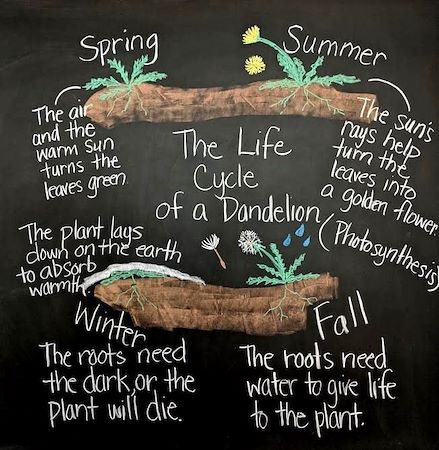 Spring
The air
and the
warm sun
turns the
leaves green.
Summer
The sun's
rays help
turn the
leaves into
a golden flower.
(Photosynthesis)
The Life
Cycle
of a Dandelion
The plant lays
down on the earth
to absorb
warmth
Winter
The roots need
the dark, or the
plant will die.
Fall
The roots need
water to give life
to the plant.